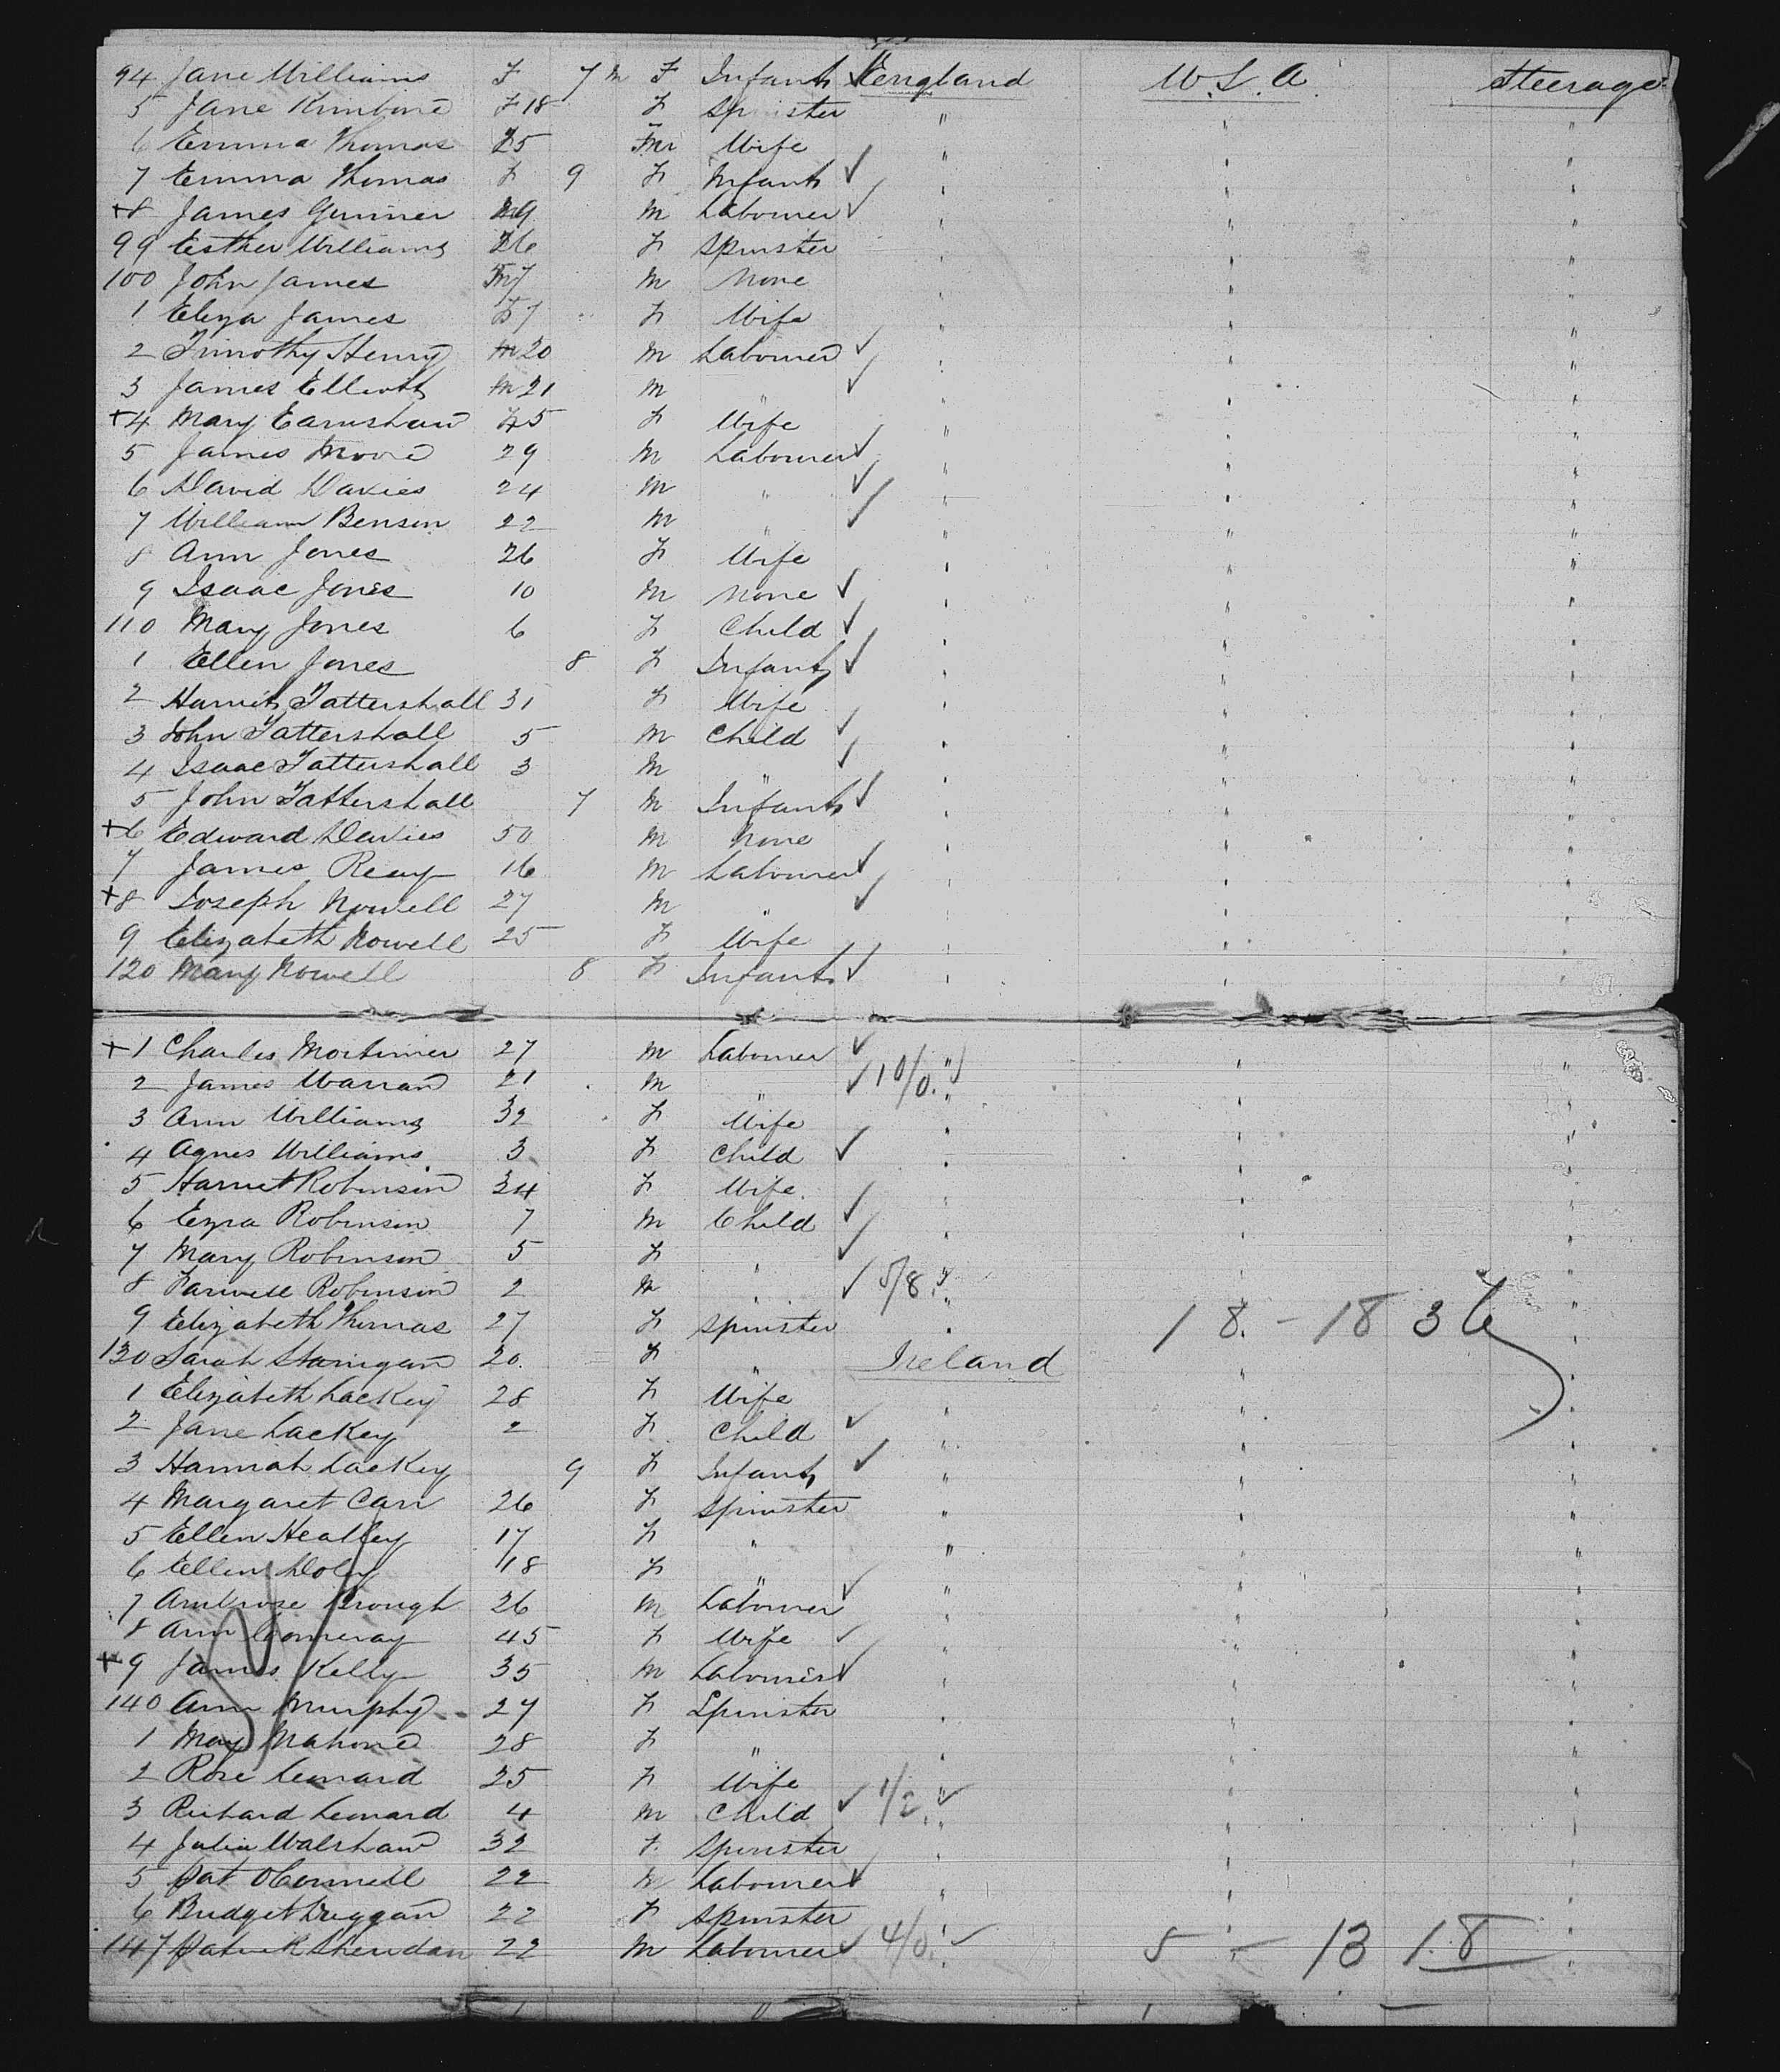 94 Jane Williams F 7 m F Infant ✓ England U.S.A. Steerage
5 Jane F 18 F Spinster " " "
6 Emma Thomas 25 F Wife " " "
7 Emma Thomas F 9 F Infant ✓ " " "
+8 James Gunner 19 M Labourer ✓ " " "
99 Esther Williams 26 F Spinster " " "
100 John James M None " " "
1 Eliza James F Wife " " "
2 Timothy Henry M 20 M Labourer ✓ " " "
3 James Elliott M 21 M " ✓ " " "
+4 Mary Earnshaw 45 F Wife " " "
5 James Moore 29 M Labourer ✓ " " "
6 David Davies 24 M " ✓ " " "
7 William Benson 22 M " ✓ " " "
8 Ann Jones 26 F Wife " " "
9 Isaac Jones 10 M None ✓ " " "
110 Mary Jones 6 F Child ✓ " " "
1 Ellen Jones 8 F Infant ✓ " " "
2 Harriet Tattershall 31 F Wife " " "
3 John Tattershall 5 M Child ✓ " " "
4 Isaac Tattershall 3 M " ✓ " " "
5 John Tattershall 7 M Infant ✓ " " "
+6 Edward Davies 50 M None " " "
7 James Reay 16 M Labourer ✓ " " "
+8 Joseph Nowell 27 M " ✓ " " "
9 Elizabeth Nowell 25 F Wife " " "
120 Mary Nowell 8 F Infant ✓ " " "
+1 Charles Mortimer 27 M Labourer ✓ " " "
2 James Warran 21 M " ✓ 10/0. " " "
3 Ann Williams 32 F Wife " " "
4 Agnes Williams 3 F Child ✓ " " "
5 Harriet Robinson 34 F Wife " " "
6 Ezra Robinson 7 M Child ✓ " " "
7 Mary Robinson 5 F " ✓ " " "
8 Farwell Robinson 2 M " ✓ 5/8. " " "
9 Elizabeth Thomas 27 F Spinster " 18. - 18 36 "
130 Sarah 20. F " Ireland " "
1 Elizabeth Lackey 28 F Wife " " "
2 Jane Lackey 2 F Child ✓ " " "
3 Hannah Lackey 9 F Infant ✓ " " "
4 Margaret Carr 26 F Spinster " " "
5 Ellen Heatley 17 F " " " "
6 Ellen Doly 18 F " " " "
7 Ambrose Brough 26 M Labourer ✓ " " "
8 Ann 45 F Wife ✓ " " "
+9 James Kelly 35 M Labourer ✓ " " "
140 Ann Murphy 27 F Spinster " " "
1 May Mahone 28 F " " " "
2 Rose Leonard 25 F Wife " " "
3 Richard Leonard 4 M Child ✓ 1/2. " ✓ " "
4 Julia Walshaw 32 F. Spinster " " "
5 Pat OConnell 22 M Labourer ✓ " " "
6 Bridget Duggan 22 F Spinster " " "
147 Patrick Sheridan 22 M Labourer ✓ 4/0. ✓ 5 - 13 18 "